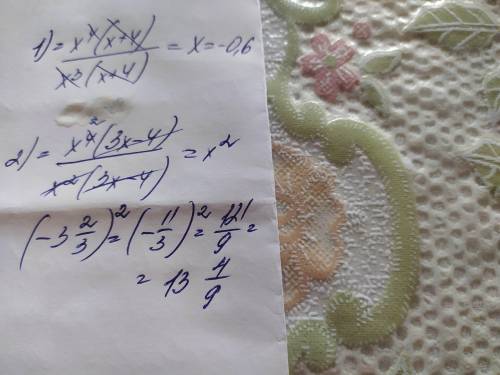 1) = x⁴(x+4) / x³(x+4) = x = -0,6
2) = x⁴(3x-4) / x²(3x-4) = x²
(-3 2/3)² = (-11/3)² = 121/9 =
= 13 4/9